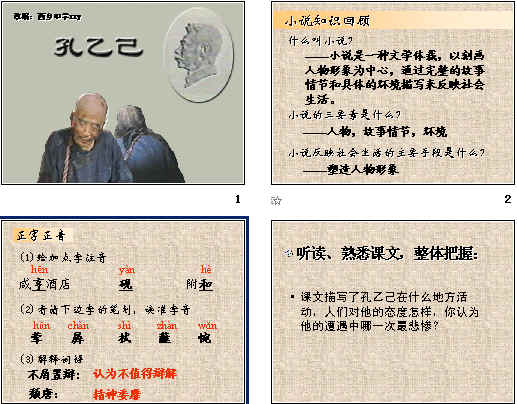 孔乙己
1
小说知识回顾
什么叫小说?
——小说是一种文学体裁，以刻画
人物形象为中心，通过完整的故事
情节和具体的环境描写来反映社会
生活。
小说的三要素是什么?
——人物，故事情节，环境
小说反映社会生活的主要手段是什么?
——塑造人物形象
2
正字正音
(1)给加点字注音
hēn yàn hè
咸亨酒店 砚 附和
(2)看清下边字的笔划，读准字音
hūn chàn shì zhàn wǎn
荤 羼 拭 蘸 惋
(3)解释词语
不屑置辩： 认为不值得辩解
颓唐： 精神萎靡
听读、熟悉课文，整体把握：
• 课文描写了孔乙己在什么地方活
动，人们对他的态度怎样，你认为
他的遭遇中哪一次最悲惨?